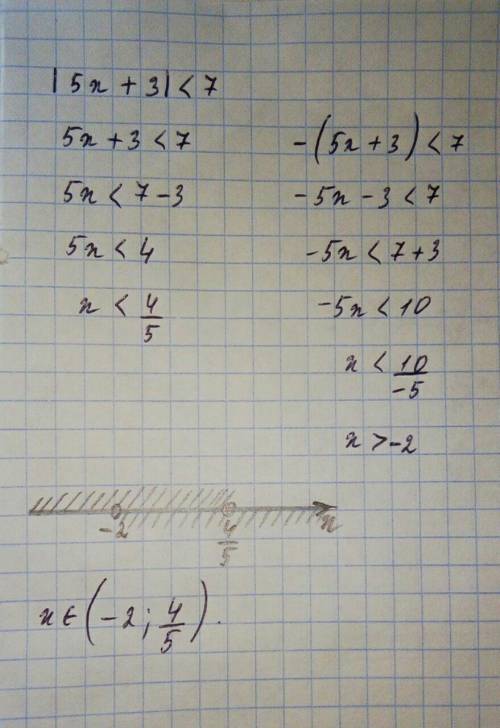 |5x + 3| < 7
5x + 3 < 7
5x < 7 - 3
5x < 4
x < 4/5
-(5x + 3) < 7
-5x - 3 < 7
-5x < 7 + 3
-5x < 10
x < 10/-5
x > -2
-2 4/5 x
x ∈ (-2; 4/5).